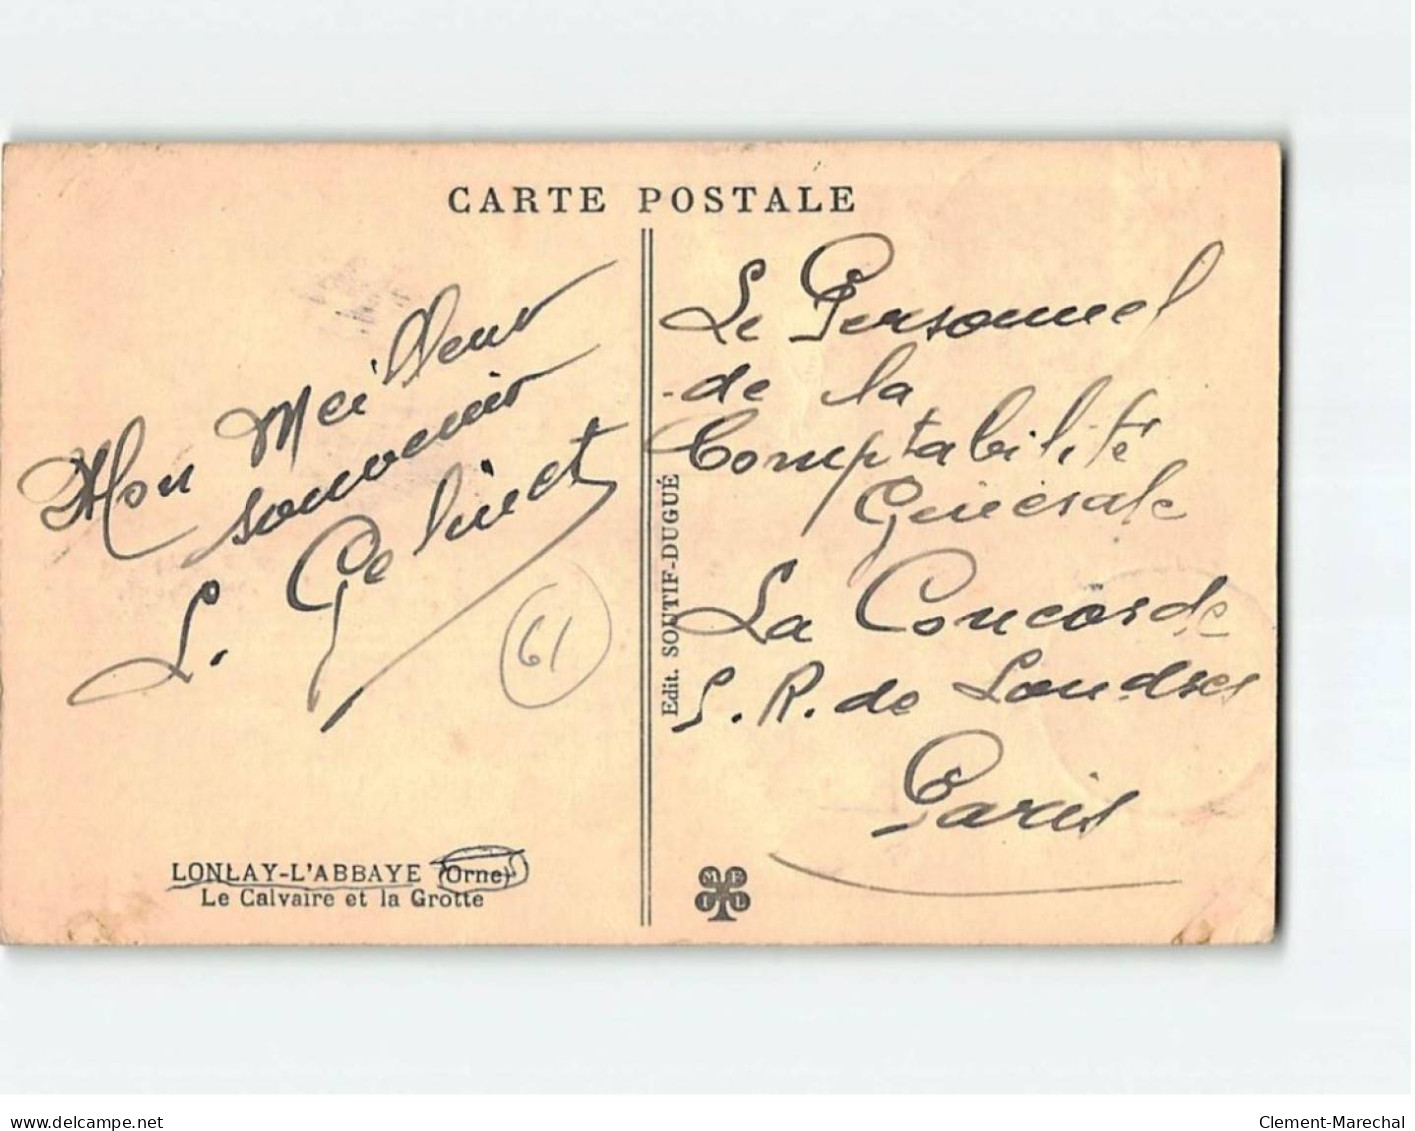 CARTE POSTALE
Mon Meilleur
souvenir
L. Gelinet
61
LONLAY-L'ABBAYE (Orne)
Le Calvaire et la Grotte
Edit. SOUTIF-DUGUÉ
Le Personnel
de la
Comptabilité
Générale
La Concorde
5. R. de Londres
Paris
M F I L
delcampe.net
Clement-Marechal